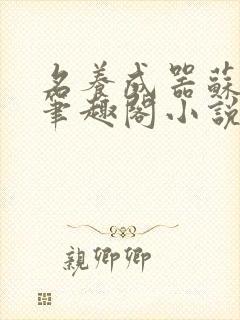 名養成器蘇
筆趣閣小說
親卿卿